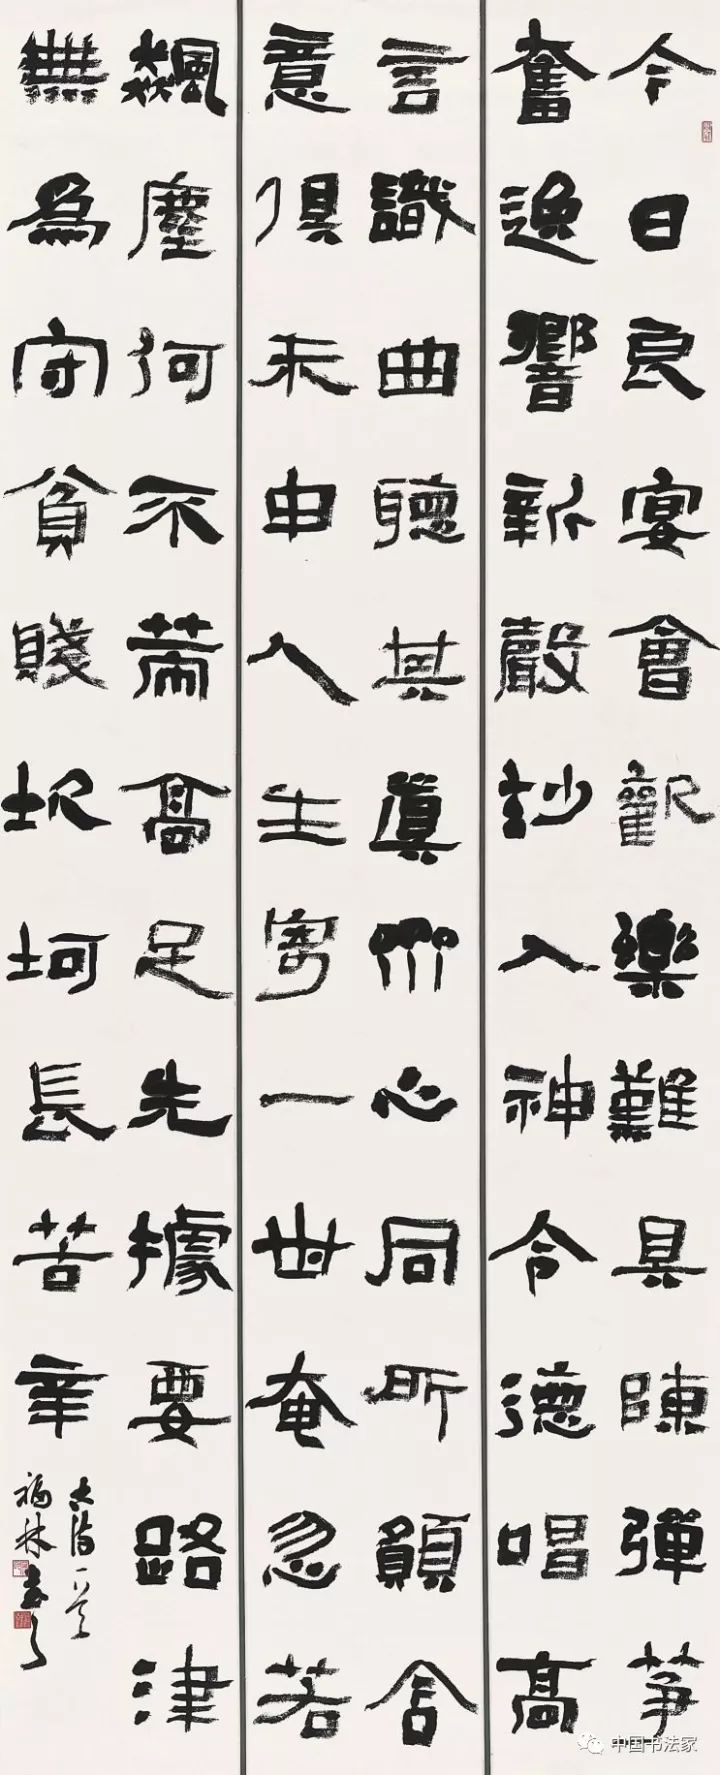 今日良宴會歡樂難具陳彈箏
奮逸響新聲妙入神令德唱高
言識曲聽其真齊心同所願含
意俱未申人生寄一世奄忽若
飆塵何不策高足先據要路津
無為守貧賤坎坷長苦辛
古詩一首
福林書
中国书法家